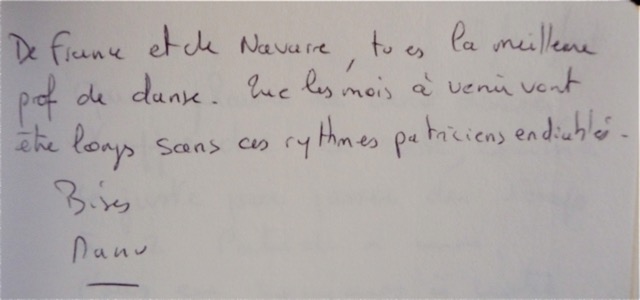 De France et de Navarre, tu es la meilleure
prof de danse. Que les mois à venir vont
être longs sans ces rythmes patriciens endiablés.
Bises
Manu